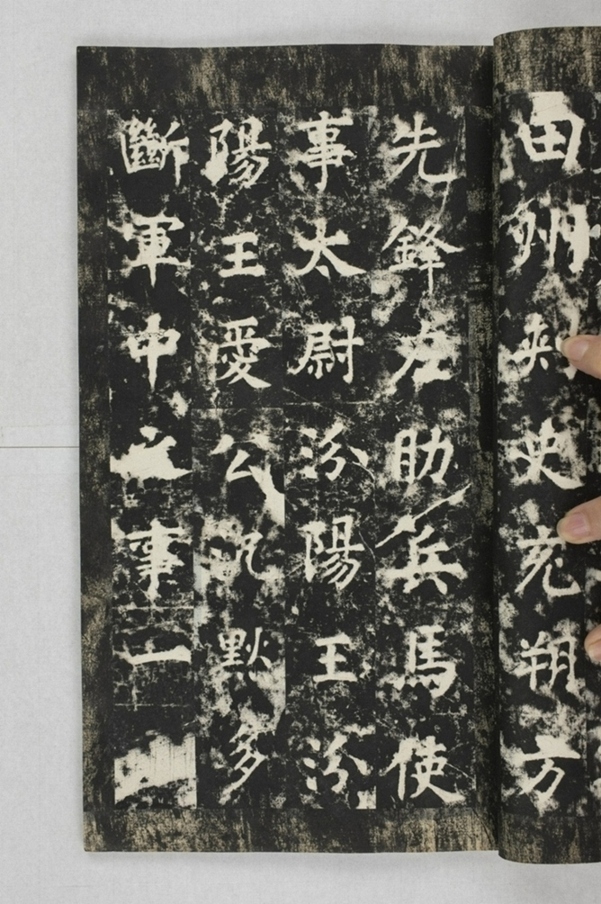 田州刺史充朔方
先鋒左助兵馬使
事太尉汾陽王汾
陽王愛公沉默多
斷軍中之事一